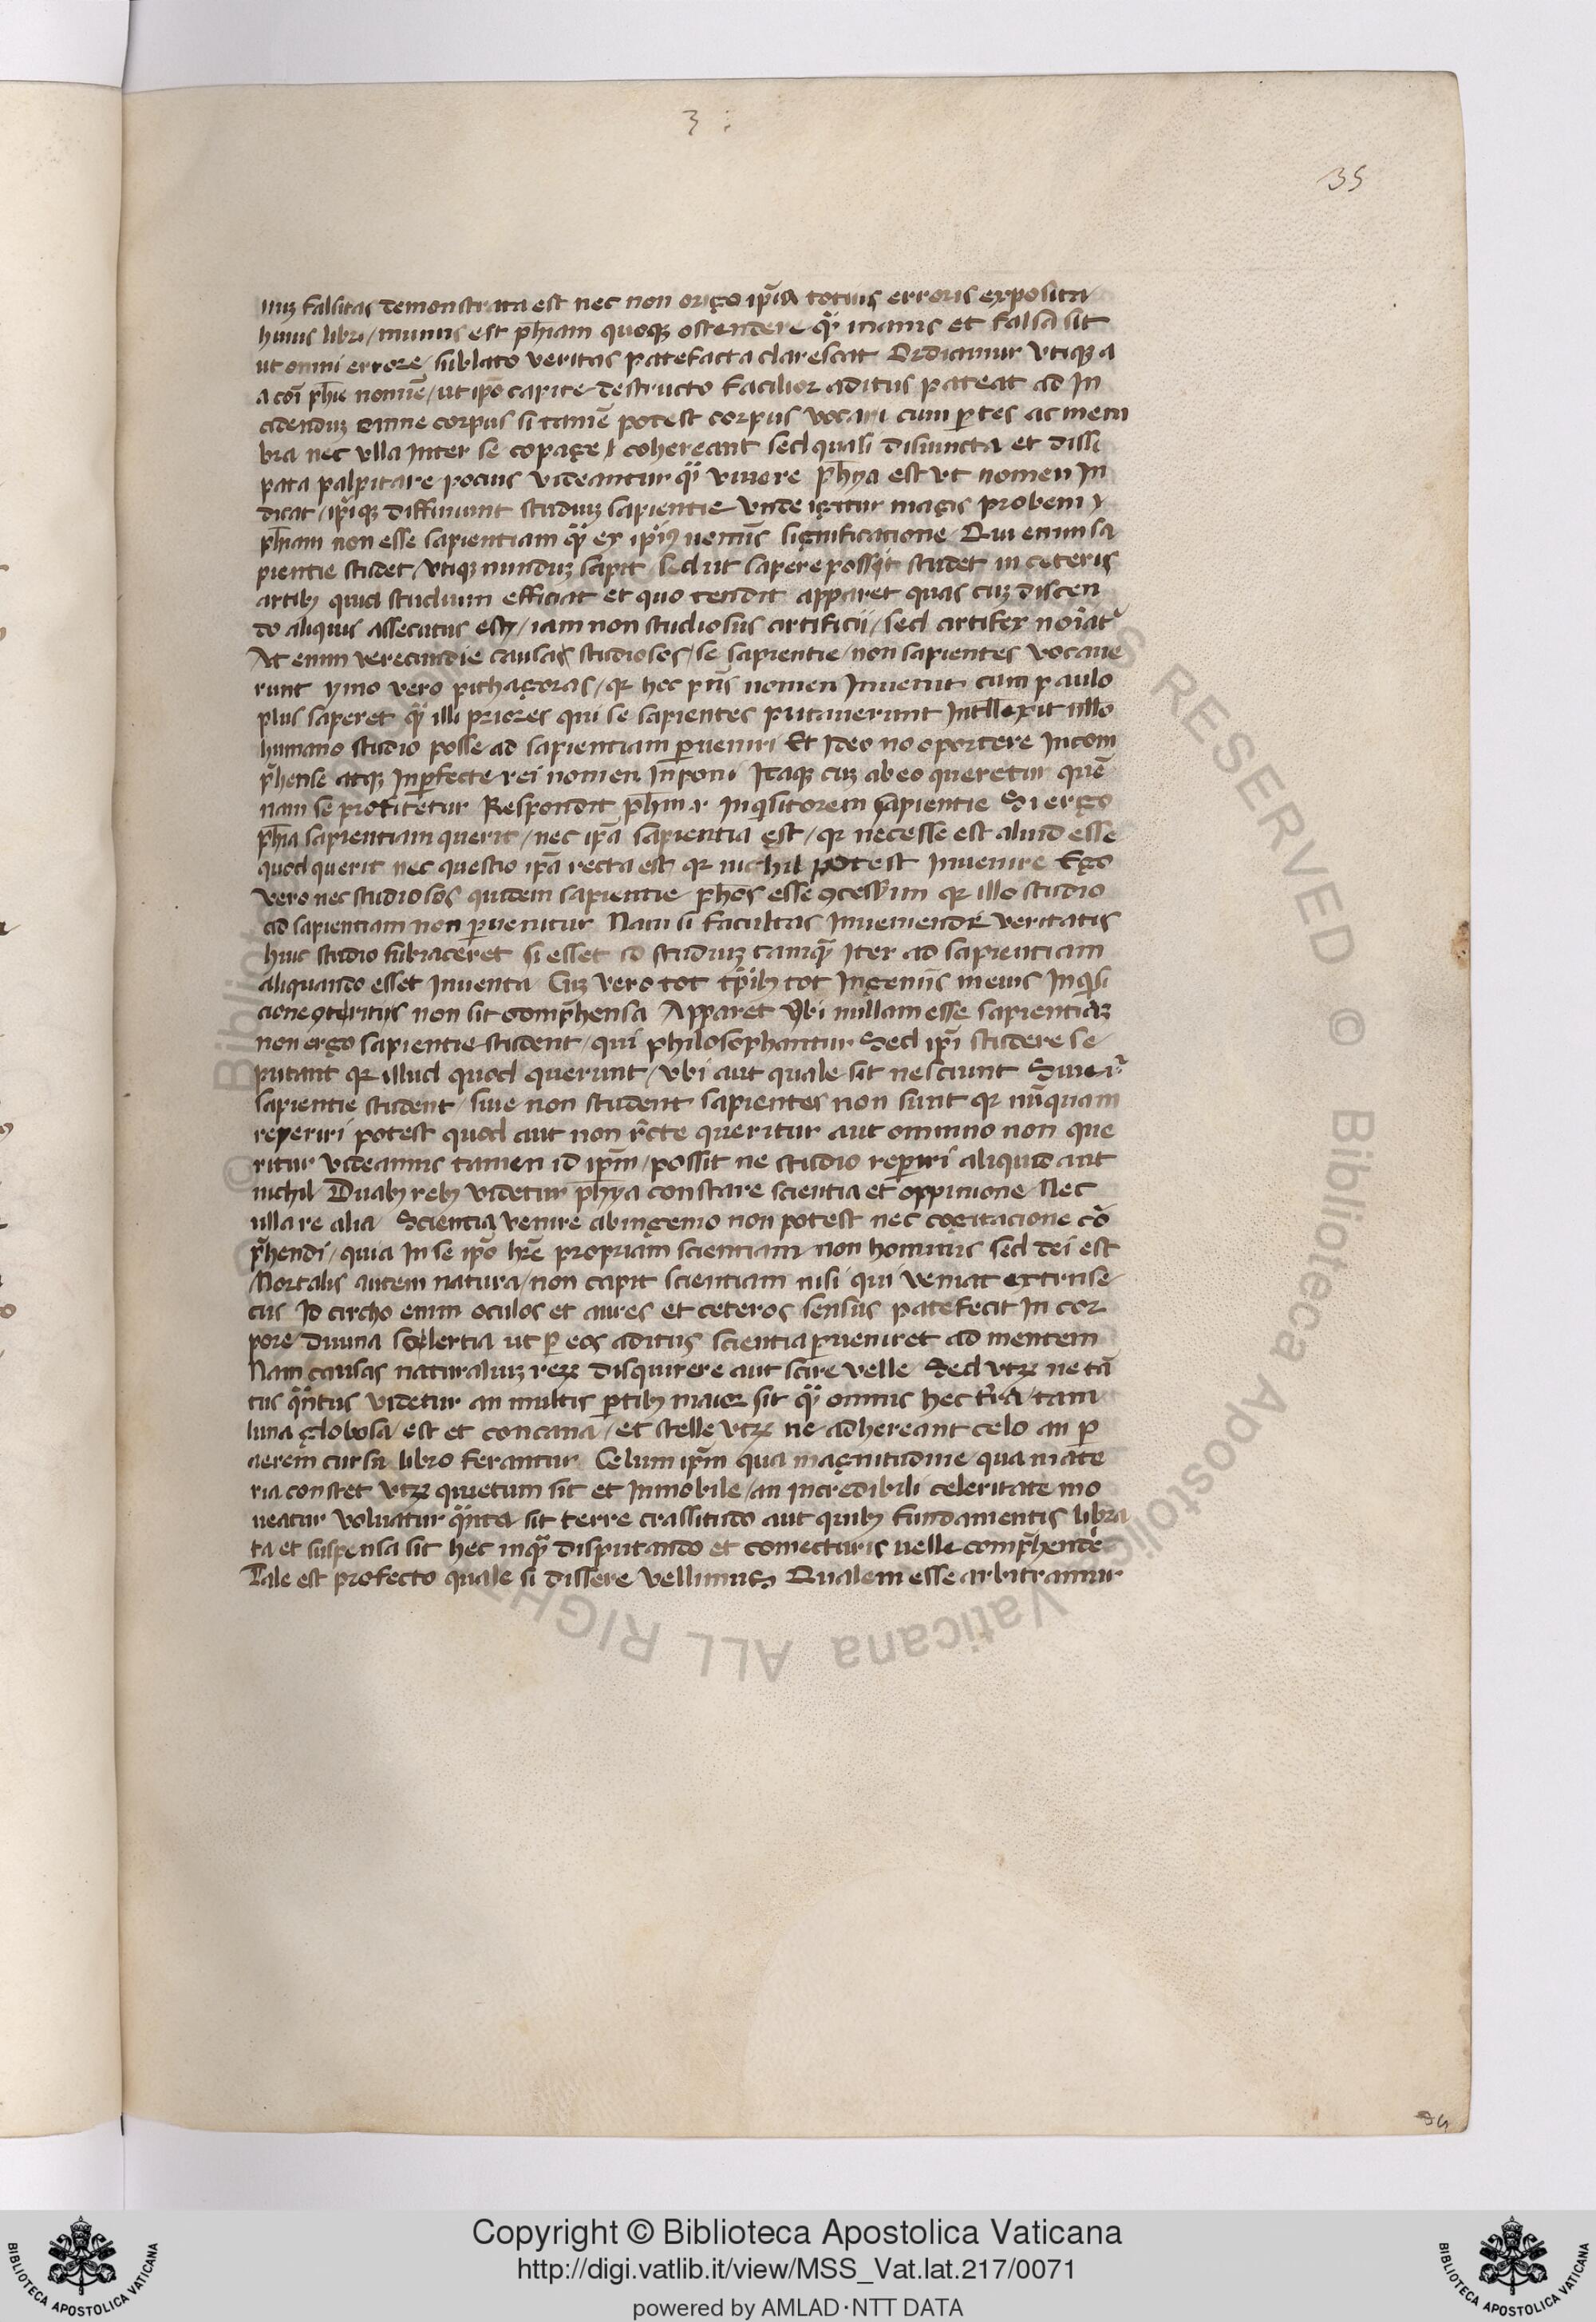 3
35
nuȝ falsitas demonstrata est nec non origo ip̄ia totius erroris exposita
huius libri / munus est ph̄iam quoqꝫ ostendere q̈ꝫ inanis et falsa sit
ut omni errore / sublato veritas patefacta clarescat Ordiamur vtiqꝫ a
a coī ph̄ie nomīe / ut ip̄o capite destructo facilior aditus pateat ad In
cidenduȝ omne corpus si tamē potest corpus vocari cum ꝑtes ac mem
bra nec vlla Inter se copage cohereant sed quasi disiuncta et dissi
pata palpitare pocius videantur q̈ꝫ viuere ph̄ya est vt nomen In
dicat / ip̄iqꝫ diffiniunt studiuȝ sapientie vnde igitur magis probem
ph̄iam non esse sapientiam q̈ꝫ ex ip̄iꝰ significatione Qui enim sa
pientie studet / vtiqꝫ nunduȝ sapit sed ut sapere possit studet in ceteris
artibꝫ quid studium efficiat et quo tendit apparet quas cuȝ discen
do aliquis assecutus est / iam non studiosus artificii / sed artifex noīat᷑
At enim verecundie causas studiosos / se sapientie / non sapientes vocaue
runt ymo vero pithagoras / qꝛ hec nomen Inuenit cum paulo
plus saperet q̈ꝫ illi priores qui se sapientes putauerunt Intllexit nllo
humano studio posse ad sapientiam ꝑueniri Et Ideo no oportere Incom
p̄hense atqꝫ Inꝑfecte rei nomen Inponi Itaqꝫ cuȝ ab eo queretur quē
nam se profitetur Respondit Inqͥsitorem sapientie Si ergo
ph̄ia sapientiam querit / nec ip̄a sapientia est / qꝛ necesse est aliud esse
quod querit nec questio ip̄a recta est qꝛ nichil potest Inuenire Ego
vero nec studiosos quidem sapientie ph̄os esse ꝯcesserim qꝛ illo studio
ad sapientiam non ꝑuenitur Nam si facultas Inueniende veritatis
huic studio subiaceret si esset id studiuȝ tamqꝫ̄ Iter ad sapientiam
aliquando esset Inuenta Cuȝ vero tot tp̄ibꝫ tot Ingeniis in eius Inqͥsi
cione ꝯtritiis non sit comp̄hensa Apparet vbi nullam esse sapientiaȝ
non ergo sapientie student / qui philosophantur Sed ip̄i studere se
putant qꝛ illud quod querunt / vbi aut quale sit nesciunt Siue
sapientie student / siue non student sapientes non sunt qꝛ nūquam
reperiri potest quod aut non r̄cte queritur aut omnino non que
ritur videamus tamen id ip̄m / possit ne studio reꝑiri aliquid aut
nichil Duabꝫ rebꝫ videtur ph̄ya constare scientia et oppinione Nec
ulla re alia Scientia venire ab ingenio non potest nec cogitacione cō
p̄hendi / quia In se ip̄o hr̄e propriam scientiam non hominis sed dei est
Mortalis autem natura / non capit scientiam nisi qui veniat extrinse
cus Id circho enim oculos et aures et ceteros sensus patefecit In cor
pore / diuina solertia ut ꝑ eos aditus scientia ꝑueniret ad mentem
Nam causas naturaliuȝ reꝝ disquirere aut scire velle Sed vtꝝ ne tā
tus q̈ntus videtur an multis ꝑtibꝫ maior sit q̈ꝫ omnis hec tr̄a / tam
luna globosa / est et concaua / et stelle vtꝝ ne adhereant celo an ꝑ
aerem cursu libro ferantur Celum ip̄m qua magnitudine / qua mate
ria constet vtꝝ quietum sit et Inmobile / an incredibili celeritate mo
ueatur voluatur q̈nta sit terre crassitudo aut quibꝫ fundamentis libra
ta et suspensa sit hec inqꝫ̄ disputando et coniecturis uelle comp̄hende
Tale est profecto quale si dissere vellimus Qualem esse arbitramur
© Biblioteca Apostolica Vaticana ALL RIGHTS RESERVED
Copyright © Biblioteca Apostolica Vaticana
http://digi.vatlib.it/view/MSS_Vat.lat.217/0071
powered by AMLAD·NTT DATA
BIBLIOTECA APOSTOLICA VATICANA
BIBLIOTECA APOSTOLICA VATICANA